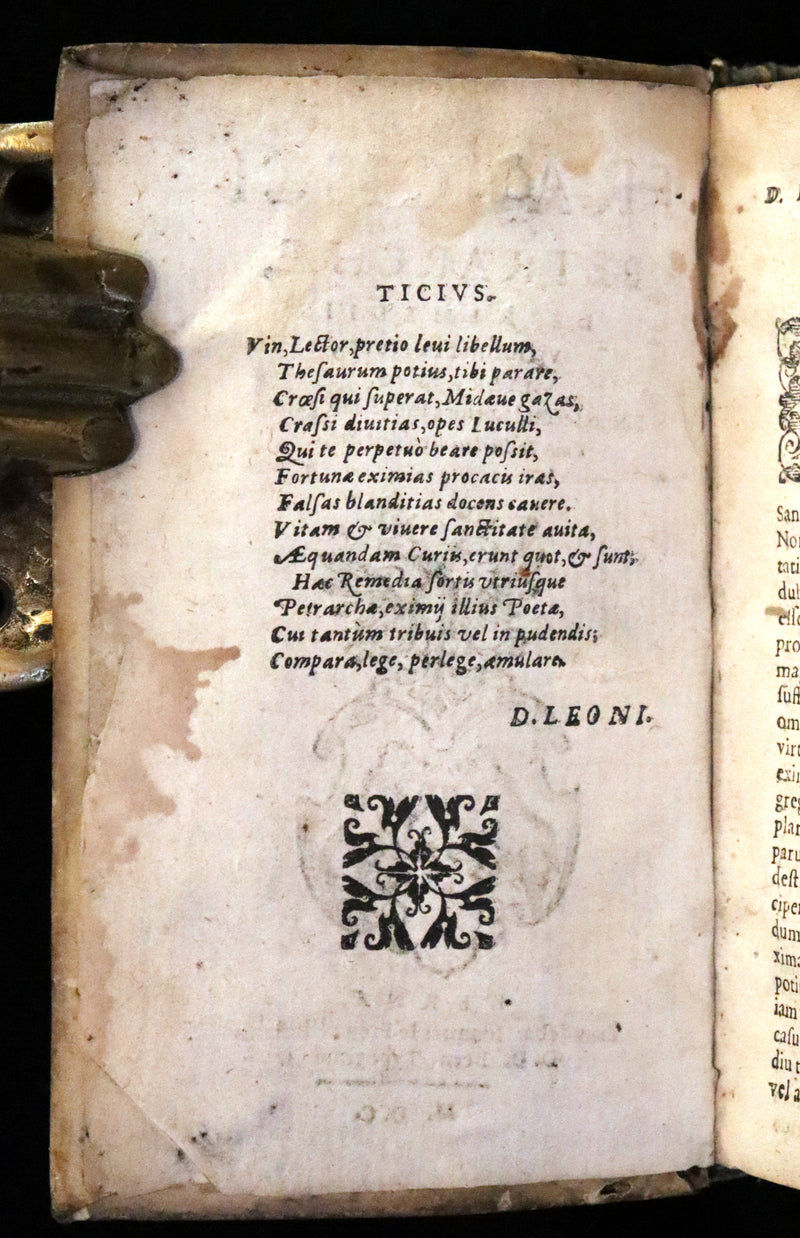 TICIVS.
Vin, Lector, pretio leui libellum,
Thesaurum potius, tibi parare,
Crœsi qui superat, Midaue gazas,
Crassi diuitias, opes Luculli,
Qui te perpetuò beare possit,
Fortunæ eximias procacis iras,
Falsas blanditias docens cauere.
Vitam & viuere sanctitate auita,
Æquandam Curiis, erunt quot, & sunt;
Hæc Remedia sortis vtriusque
Petrarchæ, eximij illius Poetæ,
Cui tantùm tribuis vel in pudendis;
Compara, lege, perlege, æmulare.
D. LEONI.
D.
San
Non
tati
dub
esse
pro
ma
suff
om
virt
exin
greg
plan
paru
dest
ciper
dum
xima
poti
iam
casu
diu t
vel a